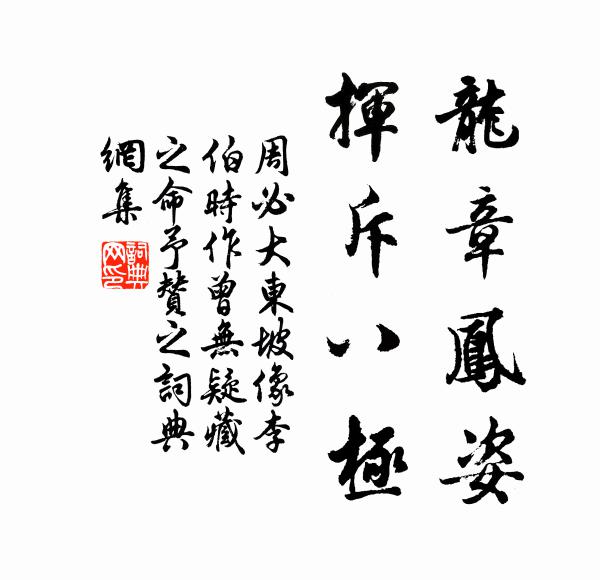 龍章鳳姿
揮斥八極
周必大東坡像李
伯時作曾無疑藏
之命予贊之詞典
網集
詞典
网印